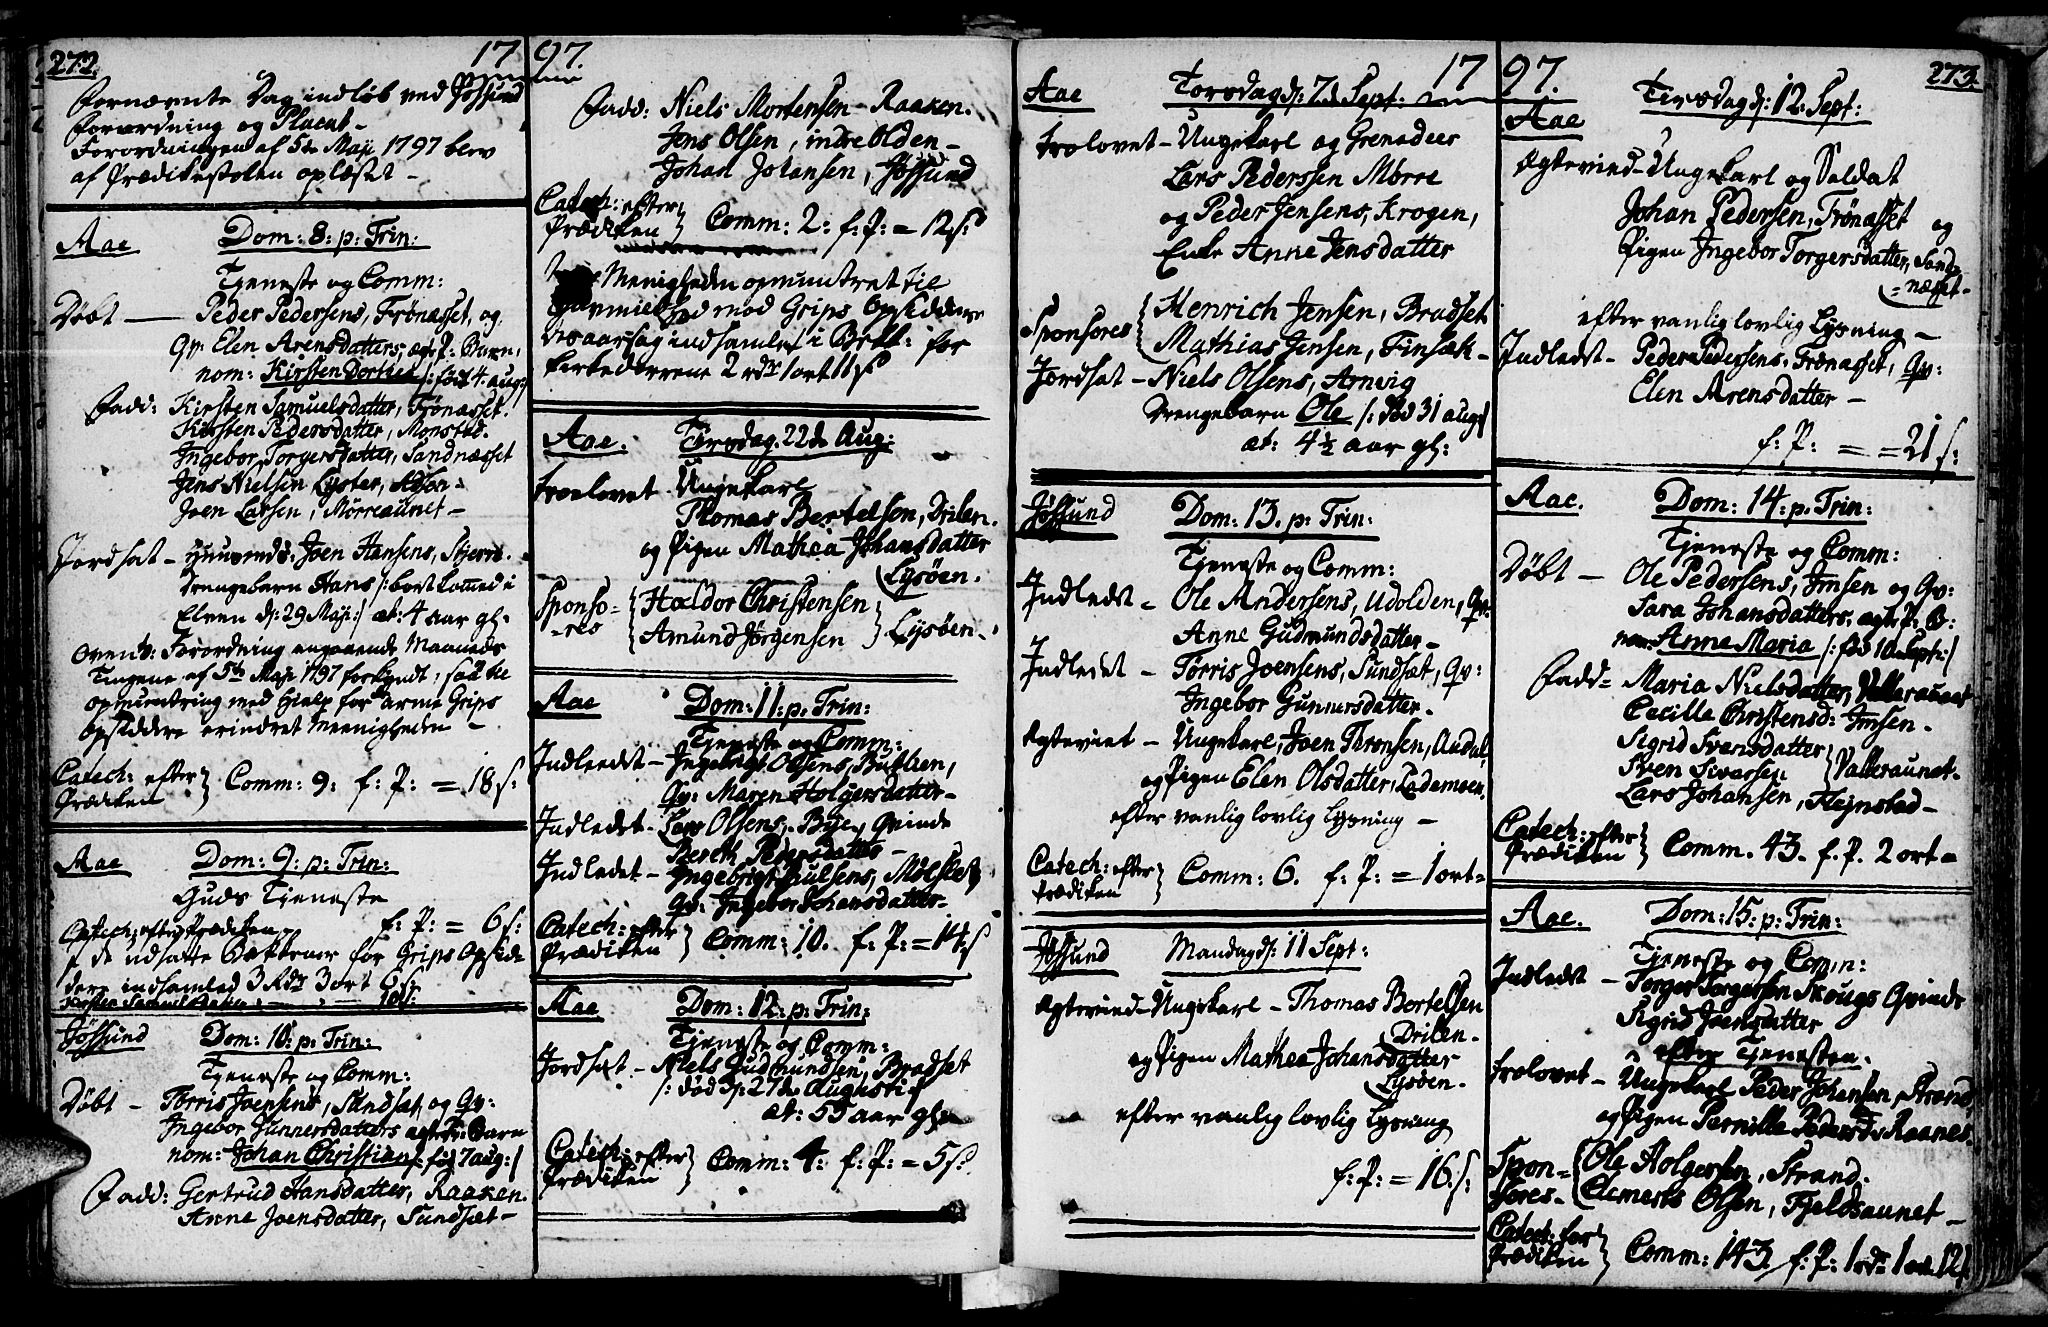 272.
17 97.
Fornævnte Dag indløb ved Jøssund
Forordning og Placat -
Forordningen af 5te Maji 1797 blev
af Prædikestolen oplæset -
Aae Dom: 8: p: Trin:
Tjeneste og Comm:
Døbt — Peder Pedersens, Frønæsset, og
Qv: Elen Arensdatters, ægte P: Barn,
nom: Kirsten Dorthea /: fød 4. aug:/
Fadd: Kirsten Samuelsdatter, Frønæsset.
Kirsten Pedersdatter, Monstad.
Ingebor Torgersdatter, Sandnæsset
Jens Nielsen Lyster,
Joen Larsen, Mørreaunet -
Jordsat - Joen Hansens, Stjerre.
Drengebarn Hans /: bortkommed i
Elven d: 29 Maji:/ æt: 4 aar gl:
Forordning angaaende Maaneds
Tingene af 5te Maji 1797 forkyndt;
opmuntring med Hielp for arme Grips
Opsiddere erindret Meenigheden -
Catech: efter
Prædiken } Comm: 9: f: P: = 18 s:
Aae Dom: 9: p: Trin:
Guds Tjeneste
Catech: efter Prædiken - f: P: = 6 s:
I de udsatte Bækkener for Grips Opsid
dere indsamled 3 Rdr 3 ort 6 s:
Jøssund Dom: 10: p: Trin:
Tjeneste og Comm:
Døbt - Tørris Joensens, Sundsæt, og Qv:
Ingebor Gunnersdatters ægte P: Barn
nom: Johan Christian /: fød 7 aug:/
Fadd: Gertrud Hansdatter, Raaken.
Anne Joensdatter, Sundsæt -
Fadd: Niels Mortensen - Raaken.
Jens Olsen, indre Olden -
Johan Johansen, Jøssund
Catech: efter
Prædiken } Comm: 2: f: P: = 12 s:
Menigheden opmuntret til
mod Grips Opsiddere
indsamles i Bekk: for
Kirkedørrene 2 rdr 1 ort 11 s
Aae. Tirsdag. 22de Aug:
troelovet Ungekarl
Thomas Bertelsen, Drilen.
og Pigen Mathea Johansdatter
Lysøen.
Sponso-
-res { Haldor Christensen
Amund Jørgensen } Lysøen -
Aae Dom: 11: p: Trin:
Tjeneste og Comm:
Indleedt - Ingebrigt Olsens,
Qv: Maren Holgersdatter -
Indledet - Lars Olsens, Bye, Qvinde
Bereth Pedersdatter -
Indledet - Ingebrigt
Qv: Ingebor Johansdatter -
Catech: efter
Prædiken } Comm: 10. f: P: = 14 s
Aae Dom: 12: p: Trin:
Tjeneste og Comm:
Jordsat - Niels Gudmundsen, Bradset
/: død d: 27de Augusti:/
æt: 55 aar gl:
Catech: efter
Prædiken } Comm: 4: f: P: = 5 s:
17 97.
273.
Aae Torsdag d: 7de Sept:
trolovet - Ungekarl og Grenadeer
Lars Pederssen Mørre
og Peder Jensens, Krogen,
Enke Anne Jensdatter
Sponsores { Henrich Jensen, Bradset
Mathias Jensen, Finsæk -
Jordsat - Niels Olsens, Arnevig
Drengebarn Ole /: død 31 aug:/
æt: 4½ aar gl:
Jøssund Dom: 13. p: Trin:
Tjeneste og Comm:
Indledet - Ole Andersens, Udolden, Qv:
Anne Gudmundsdatter -
Indledet - Tørris Joensens, Sundsæt, Qv:
Ingebor Gunnersdatter -
Ægteviet - Ungekarl, Joen Thronsen, Audal
og Pigen Elen Olsdatter, Lademoen,
efter vanlig lovlig Lysning -
Catech: efter
Prædiken } Comm: 6. f: P: = 1 ort =
Jøssund Mandag d: 11 Sept:
Ægteviet - Ungekarl - Thomas Bertelsen
Drilen -
og Pigen Mathea Johansdatter
Lysøen -
efter vanlig lovlig Lysning
f: P: = 16 s:
Aae Tirsdag d: 12. Sept:
Ægteviet - Ungekarl og Soldat
Johan Pedersen, Frønæsset og
Pigen Ingebor Torgersdatter, Sand
= næsset -
efter vanlig lovlig Lysning -
Indledt - Peder Pedersens, Frønæsset, Qv:
Elen Arensdatter -
f: P: = = 21 s:
Aae. Dom: 14: p: Trin:
Tjeneste og Comm:
Døbt - Ole Pedersens, Imsen og Qv:
Sara Johansdatters, ægte P: B:
nom: Anne Maria /: fød 10 Sept:/
Fadd = Maria Nielsdatter, Valleraunet
Cecille Christensd: Imsen -
Sigrid Svensdatter
Sven Sivarsen } Valleraunet -
Lars Johansen, Hejnstad -
Catech: efter
Prædiken } Comm. 43. f. P. 2 ort =
Aae. Dom: 15: p: Trin:
Tjeneste og Comm:
Indledt - Torger Torgersen Skougs Qvinde
Sigrid Joensdatter
efter Tjenesten.
trolovet - Ungekarl Peder Johansen, Strand
og Pigen Pernille Pedersd: Raanes.
Spon=
sores - { Ole Holgersen, Strand.
Clements Olsen, Fjeldsaunet -
Catech: for
Prædiken } Comm: 143. f: P: 1 rdr 1 ort 12 s